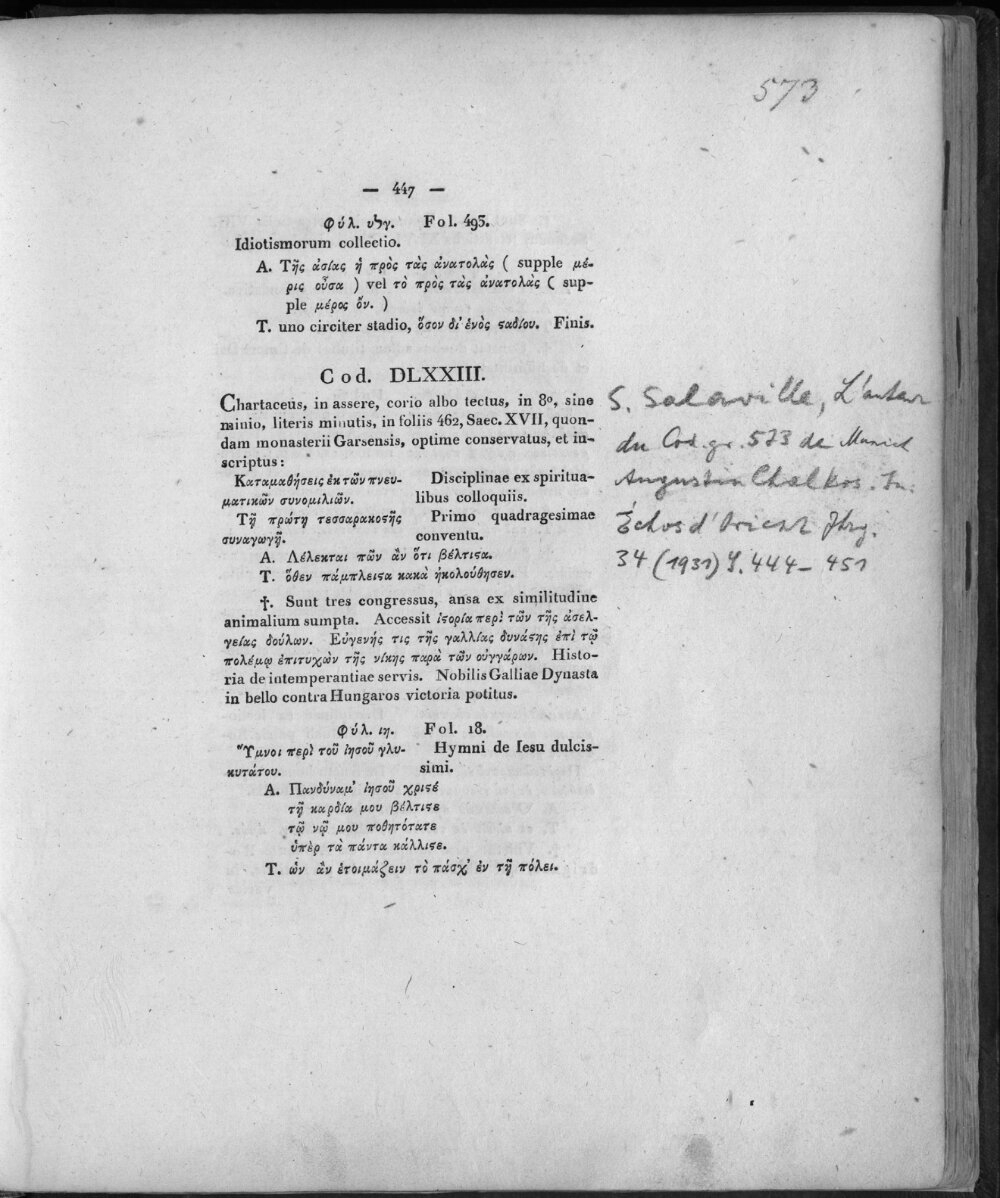 573
— 447 —
Φύλ. υϟγ. Fol. 493.
Idiotismorum collectio.
A. Τῆς ἀσίας ἡ πρὸς τὰς ἀνατολὰς ( supple μέ-
ρις οὖσα ) vel τὸ πρὸς τὰς ἀνατολὰς ( sup-
ple μέρος ὄν. )
T. uno circiter stadio, ὅσον δι᾽ ἑνὸς ϛαδίου. Finis.
Cod. DLXXIII.
Chartaceus, in assere, corio albo tectus, in 8º, sine
minio, literis minutis, in foliis 462, Saec. XVII, quon-
dam monasterii Garsensis, optime conservatus, et in-
scriptus:
Καταμαθήσεις ἐκ τῶν πνευ- Disciplinae ex spiritua-
ματικῶν συνομιλιῶν. libus colloquiis.
Τῇ πρώτῃ τεσσαρακοϛῆς Primo quadragesimae
συναγωγῇ. conventu.
A. Λέλεκται πῶν ἂν ὅτι βέλτιϛα.
T. ὅθεν πάμπλειϛα κακὰ ἠκολούθησεν.
†. Sunt tres congressus, ansa ex similitudine
animalium sumpta. Accessit ἱϛορία περὶ τῶν τῆς ἀσελ-
γείας δούλων. Εὐγενής τις τῆς γαλλίας δυνάϛης ἐπὶ τῷ
πολέμῳ ἐπιτυχὼν τῆς νίκης παρὰ τῶν οὐγγάρων. Histo-
ria de intemperantiae servis. Nobilis Galliae Dynasta
in bello contra Hungaros victoria potitus.
Φύλ. ιη. Fol. 18.
Ὕμνοι περὶ τοῦ ἰησοῦ γλυ- Hymni de Iesu dulcis-
κυτάτου. simi.
A. Πανδύναμ᾽ ἰησοῦ χριϛέ
τῇ καρδίᾳ μου βέλτιϛε
τῷ νῷ μου ποθητότατε
ὑπὲρ τὰ πάντα κάλλιϛε.
T. ὧν ἂν ἑτοιμάζειν τὸ πάσχ᾽ ἐν τῇ πόλει.
S. Salaville, L'auteur
du Cod. gr. 573 de Munich
Augustin Chalkos. In:
Échos d'Orient Jhrg.
34 (1931) S. 444–451